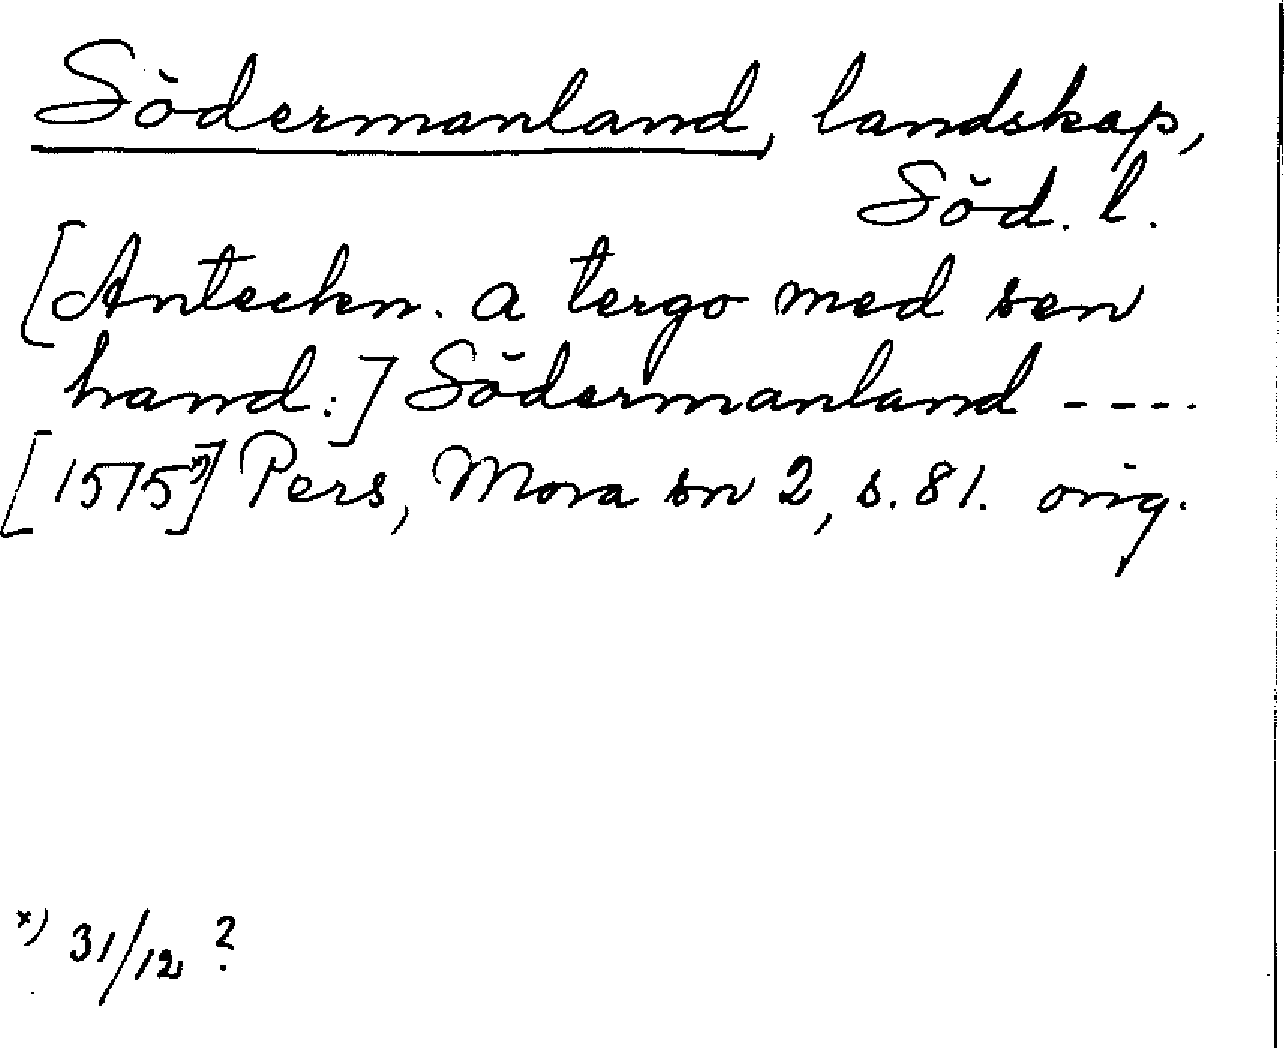 Södermanland, landskap,
Söd. l.
[Anteckn. a tergo med sen
hand:] Södermanland ----
[1575x)] Pers, Mora sn 2, s. 81. orig.
x) 31/12 ?